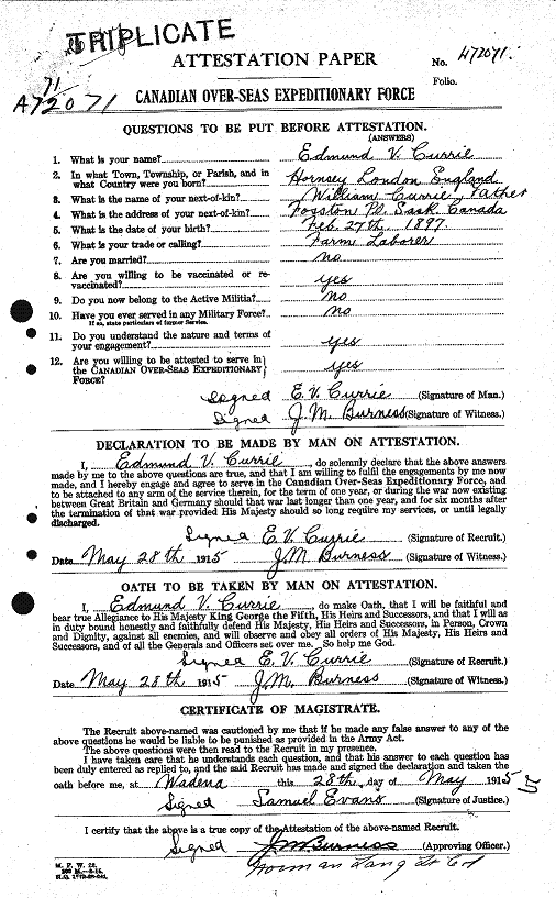 TRIPLICATE
ATTESTATION PAPER
No. 472071.
Folio.
71
A72071
CANADIAN OVER-SEAS EXPEDITIONARY FORCE
QUESTIONS TO BE PUT BEFORE ATTESTATION.
(ANSWERS)
1. What is your name? Edmund V. Currie
2. In what Town, Township, or Parish, and in
what Country were you born? Hornsey London England
3. What is the name of your next-of-kin? William Currie, Father
4. What is the address of your next-of-kin? Fosston P.O. Sask. Canada
5. What is the date of your birth? Feb. 27th, 1897.
6. What is your trade or calling? Farm Laborer
7. Are you married? no
8. Are you willing to be vaccinated or re-
vaccinated? yes
9. Do you now belong to the Active Militia? no
10. Have you ever served in any Military Force? no
If so, state particulars of former Service.
11. Do you understand the nature and terms of
your engagement? yes
12. Are you willing to be attested to serve in
the CANADIAN OVER-SEAS EXPEDITIONARY yes
FORCE?
Signed E. V. Currie (Signature of Man.)
Signed J. M. Burness (Signature of Witness.)
DECLARATION TO BE MADE BY MAN ON ATTESTATION.
I, Edmund V. Currie, do solemnly declare that the above answers
made by me to the above questions are true, and that I am willing to fulfil the engagements by me now
made, and I hereby engage and agree to serve in the Canadian Over-Seas Expeditionary Force, and
to be attached to any arm of the service therein, for the term of one year, or during the war now existing
between Great Britain and Germany should that war last longer than one year, and for six months after
the termination of that war provided His Majesty should so long require my services, or until legally
discharged.
Signed E. V. Currie (Signature of Recruit.)
Date May 28th 1915 J. M. Burness (Signature of Witness.)
OATH TO BE TAKEN BY MAN ON ATTESTATION.
I, Edmund V. Currie, do make Oath, that I will be faithful and
bear true Allegiance to His Majesty King George the Fifth, His Heirs and Successors, and that I will as
in duty bound honestly and faithfully defend His Majesty, His Heirs and Successors, in Person, Crown
and Dignity, against all enemies, and will observe and obey all orders of His Majesty, His Heirs and
Successors, and of all the Generals and Officers set over me. So help me God.
Signed E. V. Currie (Signature of Recruit.)
Date May 28th 1915 J. M. Burness (Signature of Witness.)
CERTIFICATE OF MAGISTRATE.
The Recruit above-named was cautioned by me that if he made any false answer to any of the
above questions he would be liable to be punished as provided in the Army Act.
The above questions were then read to the Recruit in my presence.
I have taken care that he understands each question, and that his answer to each question has
been duly entered as replied to, and the said Recruit has made and signed the declaration and taken the
oath before me, at Wadena this 28th day of May 1915
Signed Samuel Evans (Signature of Justice.)
I certify that the above is a true copy of the Attestation of the above-named Recruit.
Signed J M Burness (Approving Officer.)
Norman Lang Lt Col
M. F. W. 23.